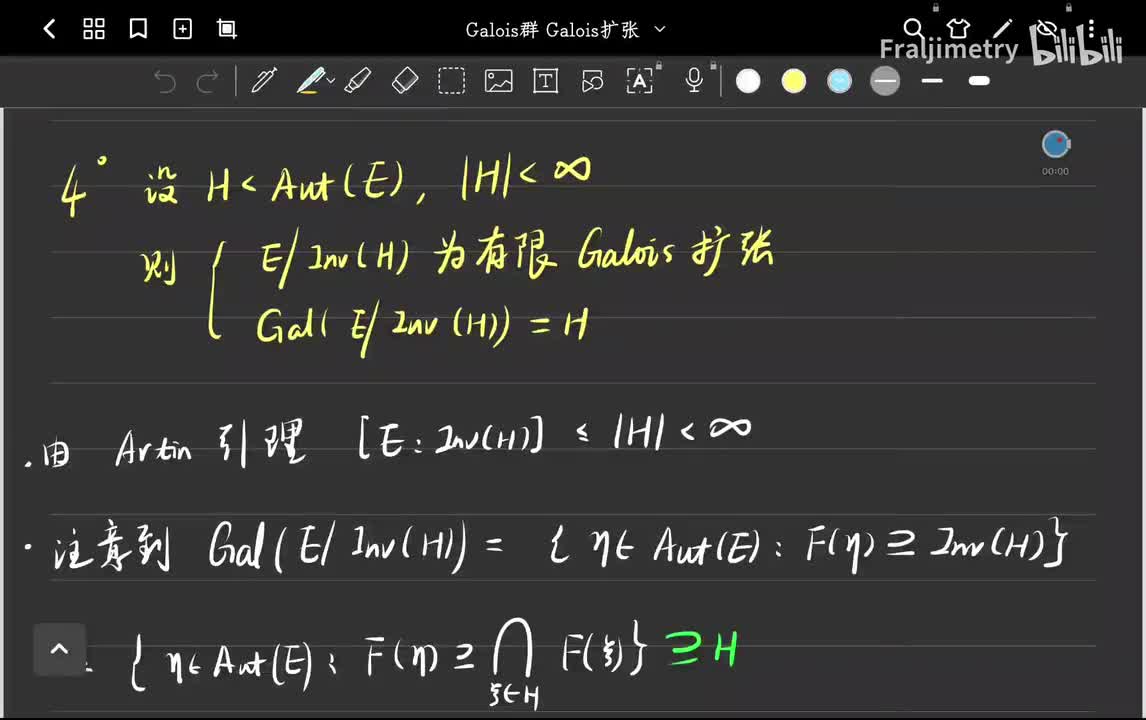 Galois群 Galois扩张
Fraljimetry bilibili
00:00
4° 设 H < Aut(E), |H| < ∞
则 { E/Inv(H) 为有限 Galois 扩张
Gal(E/Inv(H)) = H
· 由 Artin 引理 [E:Inv(H)] ≤ |H| < ∞
· 注意到 Gal(E/Inv(H)) = { η∈Aut(E): F(η) ⊇ Inv(H)}
= { η∈Aut(E): F(η) ⊇ ⋂_{ξ∈H} F(ξ)} ⊇ H